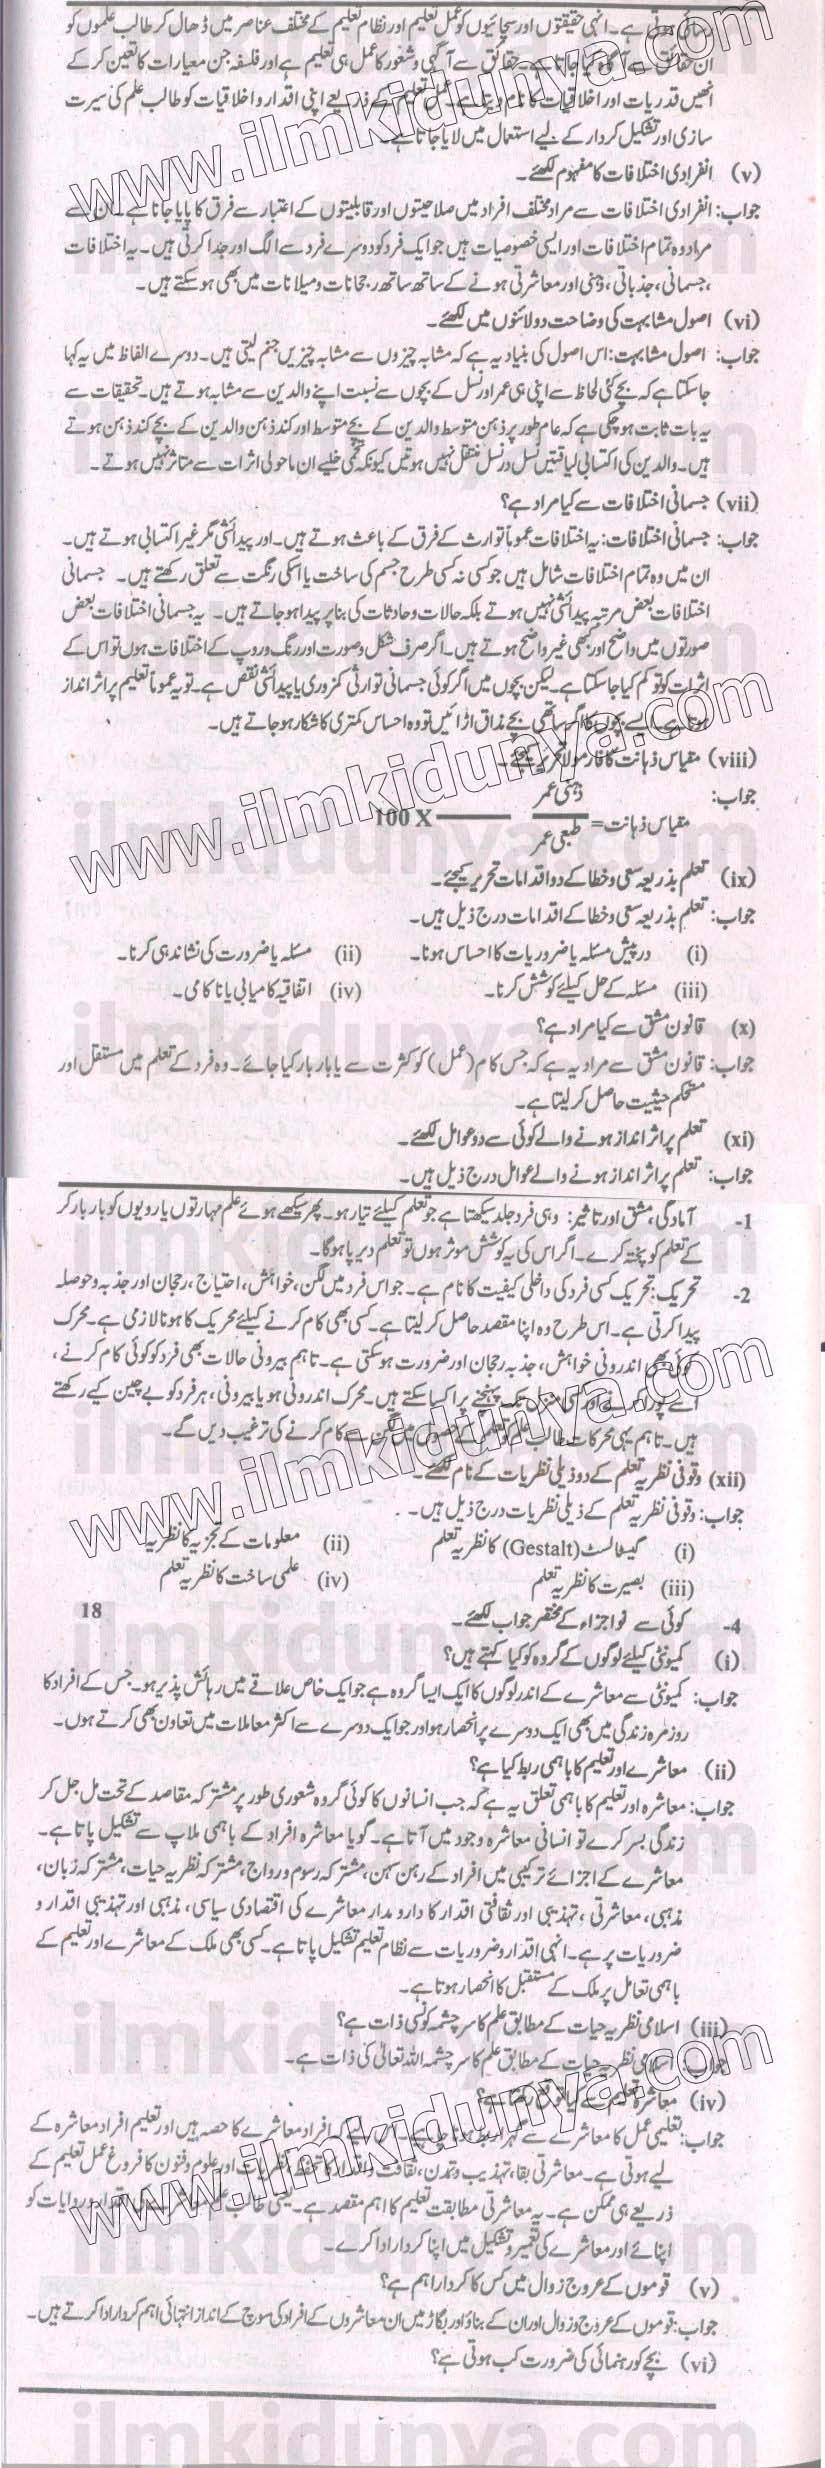 رسائی ہوتی ہے۔ انہی حقیقتوں اور سچائیوں کو عمل تعلیم اور نظام تعلیم کے مختلف عناصر میں ڈھال کر طالب علموں کو
ان حقائق سے آگاہ کیا جاتا ہے۔ حقائق سے آگہی و شعور کا عمل ہی تعلیم ہے اور فلسفہ جن معیارات کا تعین کر کے
انھیں قدریات اور اخلاقیات کا نام دیتا ہے۔ عمل تعلیم کے ذریعے اپنی اقدار و اخلاقیات کو طالب علم کی سیرت
سازی اور تشکیل کردار کے لیے استعمال میں لایا جاتا ہے۔
(v) انفرادی اختلافات کا مفہوم لکھئے۔
جواب: انفرادی اختلافات سے مراد مختلف افراد میں صلاحیتوں اور قابلیتوں کے اعتبار سے فرق کا پایا جانا ہے۔ ان سے
مراد وہ تمام اختلافات اور ایسی خصوصیات ہیں جو ایک فرد کو دوسرے فرد سے الگ اور جدا کرتی ہیں۔ یہ اختلافات
،جسمانی، جذباتی، ذہنی اور معاشرتی ہونے کے ساتھ ساتھ رجحانات و میلانات میں بھی ہو سکتے ہیں۔
(vi) اصول مشابہت کی وضاحت دو لائنوں میں لکھئے۔
جواب: اصول مشابہت: اس اصول کی بنیاد یہ ہے کہ مشابہ چیزوں سے مشابہ چیزیں جنم لیتی ہیں۔ دوسرے الفاظ میں یہ کہا
جا سکتا ہے کہ بچے کئی لحاظ سے اپنی ہی عمر اور نسل کے بچوں سے نسبت اپنے والدین سے مشابہ ہوتے ہیں۔ تحقیقات سے
یہ بات ثابت ہو چکی ہے کہ عام طور پر ذہن متوسط والدین کے بچے متوسط اور کند ذہن والدین کے بچے کند ذہن ہوتے
ہیں۔ والدین کی اکتسابی لیاقتیں نسل در نسل منتقل نہیں ہوتیں کیونکہ تخمی خلیے ان ماحولی اثرات سے متاثر نہیں ہوتے۔
(vii) جسمانی اختلافات سے کیا مراد ہے؟
جواب: جسمانی اختلافات: یہ اختلافات عموماً توارث کے فرق کے باعث ہوتے ہیں۔ اور پیدائشی مگر غیر اکتسابی ہوتے ہیں۔
ان میں وہ تمام اختلافات شامل ہیں جو کسی نہ کسی طرح جسم کی ساخت یا اسکی رنگت سے تعلق رکھتے ہیں۔ جسمانی
اختلافات بعض مرتبہ پیدائشی نہیں ہوتے بلکہ حالات و حادثات کی بنا پر پیدا ہو جاتے ہیں۔ یہ جسمانی اختلافات بعض
صورتوں میں واضح اور کبھی غیر واضح ہوتے ہیں۔ اگر صرف شکل و صورت اور رنگ و روپ کے اختلافات ہوں تو اس کے
اثرات کو تو کم کیا جا سکتا ہے۔ لیکن بچوں میں اگر کوئی جسمانی توارثی کمزوری یا پیدائشی نقص ہے۔ تو یہ عموماً تعلیم پر اثر انداز
ہوتا ہے۔ ایسے بچوں کا اگر ساتھی بچے مذاق اڑائیں تو وہ احساس کمتری کا شکار ہو جاتے ہیں۔
(viii) مقیاس ذہانت کا فارمولا تحریر کیجئے۔
جواب: ذہنی عمر
مقیاس ذہانت = 100 X
طبعی عمر
(ix) تعلم بذریعہ سعی و خطا کے دو اقدامات تحریر کیجئے۔
جواب: تعلم بذریعہ سعی و خطا کے اقدامات درج ذیل ہیں۔
(i) درپیش مسئلہ یا ضروریات کا احساس ہونا۔ (ii) مسئلہ یا ضرورت کی نشاندہی کرنا۔
(iii) مسئلہ کے حل کیلئے کوشش کرنا۔ (iv) اتفاقیہ کامیابی یا ناکامی۔
(x) قانون مشق سے کیا مراد ہے؟
جواب: قانون مشق سے مراد یہ ہے کہ جس کام (عمل) کو کثرت سے یا بار بار کیا جائے۔ وہ فرد کے تعلم میں مستقل اور
مستحکم حیثیت حاصل کر لیتا ہے۔
(xi) تعلم پر اثر انداز ہونے والے کوئی سے دو عوامل لکھئے۔
جواب: تعلم پر اثر انداز ہونے والے عوامل درج ذیل ہیں۔
1- آمادگی، مشق اور تاثیر: وہی فرد جلد سیکھتا ہے جو تعلم کیلئے تیار ہو۔ پھر سیکھے ہوئے علم مہارتوں یا رویوں کو بار بار کر
کے تعلم کو پختہ کرے۔ اگر اس کی یہ کوشش موثر ہوں تو تعلم دیرپا ہوگا۔
2- تحریک: تحریک کسی فرد کی داخلی کیفیت کا نام ہے۔ جو اس فرد میں لگن، خواہش، احتیاج، رجحان اور جذبہ و حوصلہ
پیدا کرتی ہے۔ اس طرح وہ اپنا مقصد حاصل کر لیتا ہے۔ کسی بھی کام کرنے کیلئے محریک کا ہونا لازمی ہے۔ محرک
کوئی بھی اندرونی خواہش، جذبہ رجحان اور ضرورت ہو سکتی ہے۔ تاہم بیرونی حالات بھی فرد کو کوئی کام کرنے،
اسے پورا کرنے اور کسی منزل تک پہنچنے پر اکسا سکتے ہیں۔ محرک اندرونی ہو یا بیرونی، ہر فرد کو بے چین کیے رکھتے
ہیں۔ تاہم یہی محرکات طالب علم کو تعلیم کے حصول میں لگن سے کام کرنے کی ترغیب دیں گے۔
(xii) وقوفی نظریہ تعلم کے دو ذیلی نظریات کے نام لکھئے۔
جواب: وقوفی نظریہ تعلم کے ذیلی نظریات درج ذیل ہیں۔
(i) گیسٹالٹ (Gestalt) کا نظریہ تعلم (ii) معلومات کے تجزیہ کا نظریہ
(iii) بصیرت کا نظریہ تعلم (iv) علمی ساخت کا نظریہ تعلم
4- کوئی سے نو اجزاء کے مختصر جواب لکھئے۔ 18
(i) کمیونٹی کیلئے لوگوں کے گروہ کو کیا کہتے ہیں؟
جواب: کمیونٹی سے معاشرے کے اندر لوگوں کا ایک ایسا گروہ ہے جو ایک خاص علاقے میں رہائش پذیر ہو۔ جس کے افراد کا
روز مرہ زندگی میں بھی ایک دوسرے پر انحصار ہو اور جو ایک دوسرے سے اکثر معاملات میں تعاون بھی کرتے ہوں۔
(ii) معاشرے اور تعلیم کا باہمی ربط کیا ہے؟
جواب: معاشرہ اور تعلیم کا باہمی تعلق یہ ہے کہ جب انسانوں کا کوئی گروہ شعوری طور پر مشترکہ مقاصد کے تحت مل جل کر
زندگی بسر کرے تو انسانی معاشرہ وجود میں آتا ہے۔ گویا معاشرہ افراد کے باہمی ملاپ سے تشکیل پاتا ہے۔
معاشرے کے اجزائے ترکیبی میں افراد کے رہن سہن، مشترکہ رسوم و رواج، مشترکہ نظریہ حیات، مشترکہ زبان،
مذہبی، معاشرتی، تہذیبی اور ثقافتی اقدار کا دارومدار معاشرے کی اقتصادی سیاسی، مذہبی اور تہذیبی اقدار و
ضروریات پر ہے۔ انہی اقدار و ضروریات سے نظام تعلیم تشکیل پاتا ہے۔ کسی بھی ملک کے معاشرے اور تعلیم کے
باہمی تعامل پر ملک کے مستقبل کا انحصار ہوتا ہے۔
(iii) اسلامی نظریہ حیات کے مطابق علم کا سرچشمہ کونسی ذات ہے؟
جواب: اسلامی نظریہ حیات کے مطابق علم کا سرچشمہ اللہ تعالیٰ کی ذات ہے۔
(iv) معاشرہ تعلیم سے کیا توقع رکھتا ہے؟
جواب: تعلیمی عمل کا معاشرے سے گہرا ربط ہوتا ہے۔ اس لیے کہ افراد معاشرے کا حصہ ہیں اور تعلیم افراد معاشرہ کے
لیے ہوتی ہے۔ معاشرتی بقا، تہذیب و تمدن، ثقافت و اقدار کا تحفظ نظریات اور علوم و فنون کا فروغ عمل تعلیم کے
ذریعے ہی ممکن ہے۔ یہ معاشرتی مطابقت تعلیم کا اہم مقصد ہے۔ یعنی طالب علم معاشرے کی اقدار و روایات کو
اپنائے اور معاشرے کی تعمیر و تشکیل میں اپنا کردار ادا کرے۔
(v) قوموں کے عروج زوال میں کس کا کردار اہم ہے؟
جواب: قوموں کے عروج و زوال اور ان کے بناؤ اور بگاڑ میں ان معاشروں کے افراد کی سوچ کے انداز انتہائی اہم کردار ادا کرتے ہیں۔
(vi) بچے کو رہنمائی کی ضرورت کب ہوتی ہے؟
www.ilmkidunya.com
www.ilmkidunya.com
www.ilmkidunya.com
www.ilmkidunya.com
ilmkidunya.com